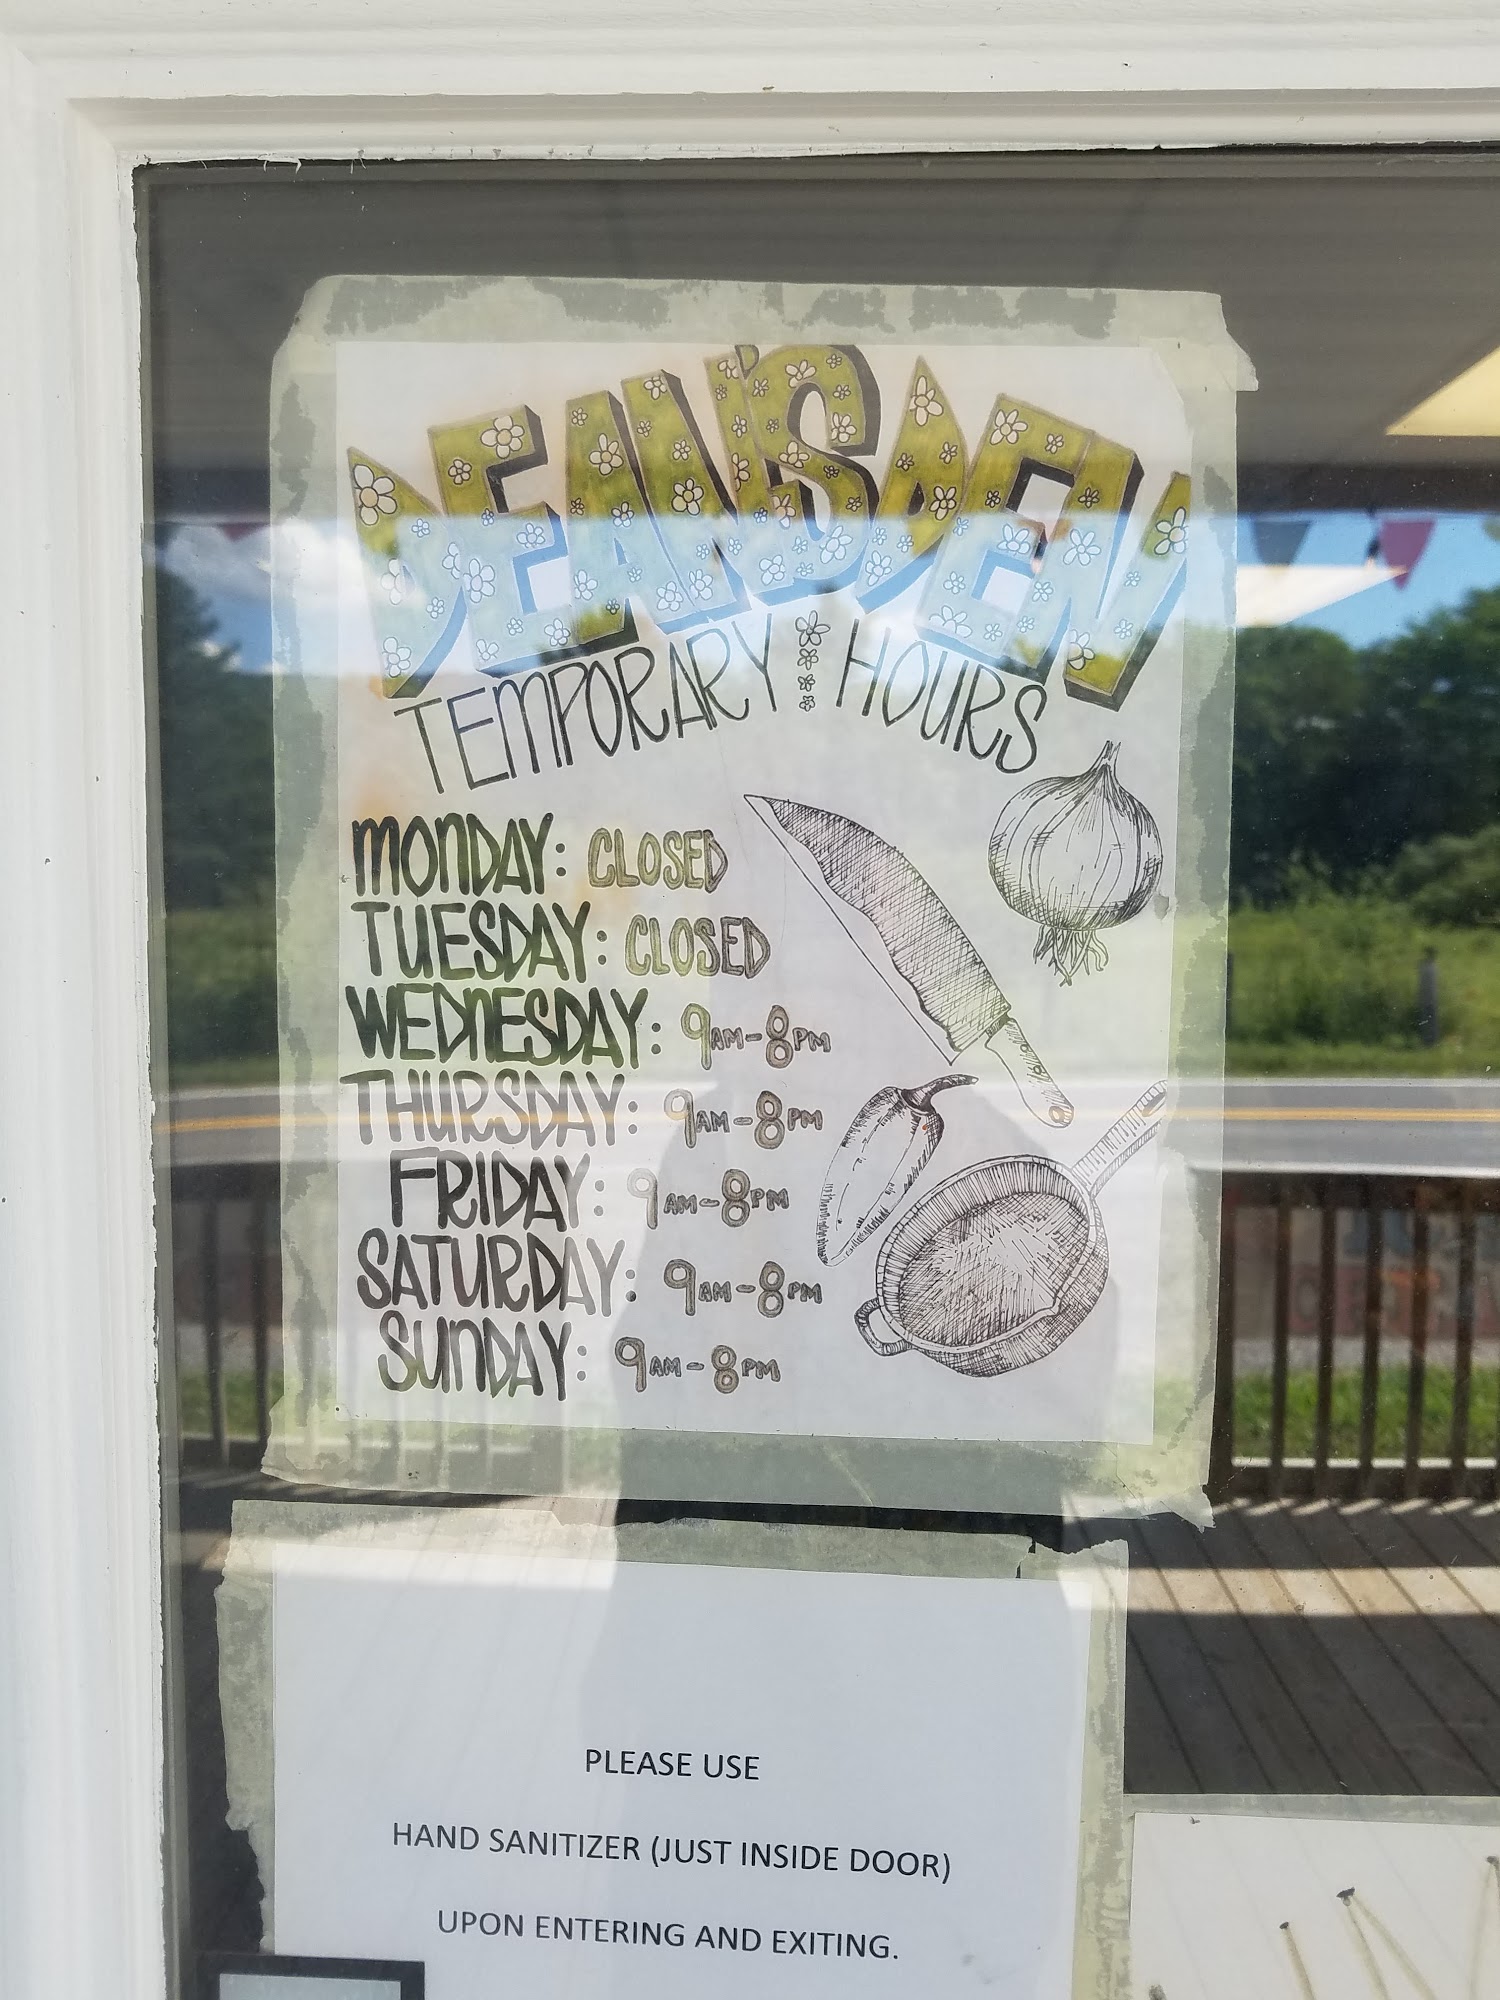 DEAN'S DEN
TEMPORARY HOURS
MONDAY: CLOSED
TUESDAY: CLOSED
WEDNESDAY: 9AM-8PM
THURSDAY: 9AM-8PM
FRIDAY: 9AM-8PM
SATURDAY: 9AM-8PM
SUNDAY: 9AM-8PM
PLEASE USE
HAND SANITIZER (JUST INSIDE DOOR)
UPON ENTERING AND EXITING.